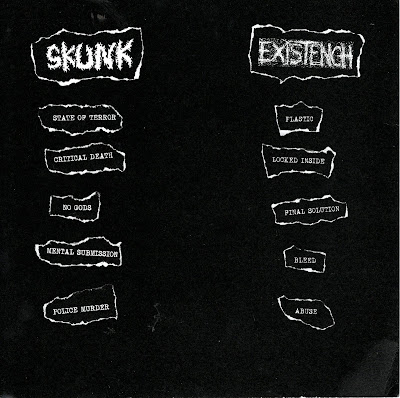 SKUNK
STATE OF TERROR
CRITICAL DEATH
NO GODS
MENTAL SUBMISSION
POLICE MURDER
EXISTENCH
PLASTIC
LOCKED INSIDE
FINAL SOLUTION
BLEED
ABUSE